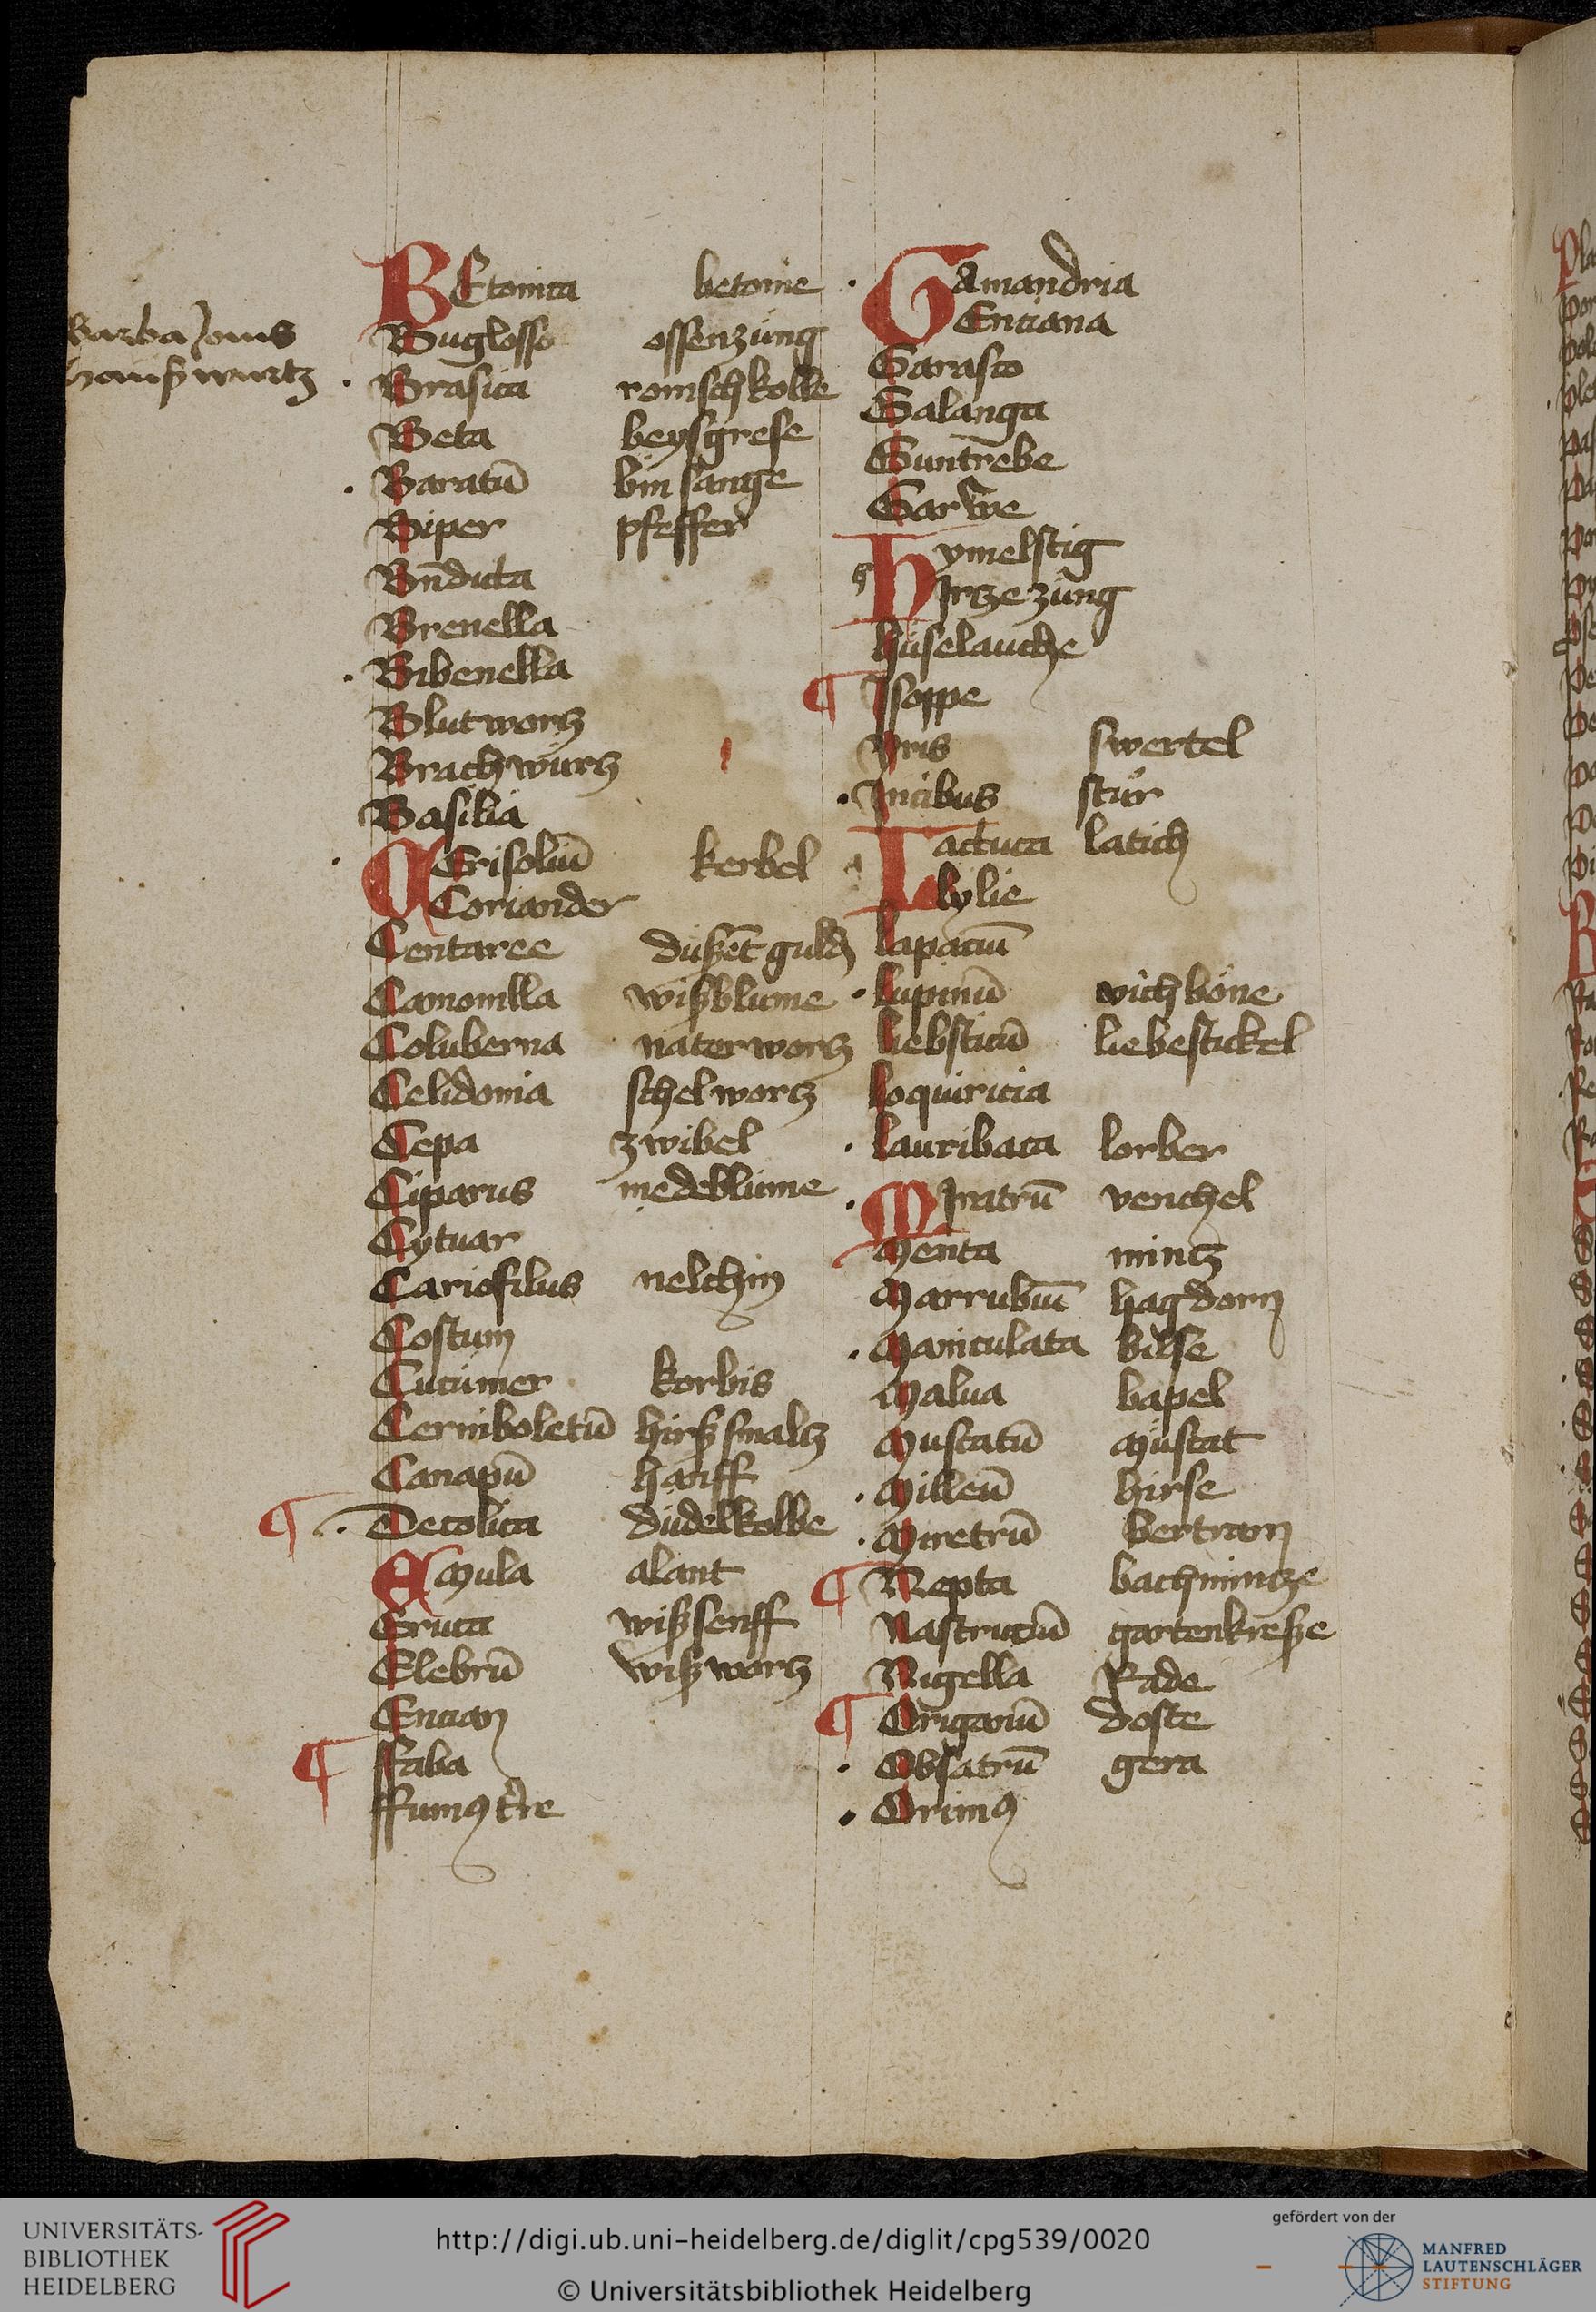 barba Jouis
hauszwurtz
BEtonica betonie
Buglosse ossenzung
Brasica romsch kolle
Beta beysgrese
Baratū bin sauge
Biper pfeffer
Bn̄dicta
Brenella
Bibenella
Blutworcz
Brachwurcz
Basilia
CErifoliū kerbel
Coriander
Centaree duszēt guldn
Camomilla wiszblume
Coluberna naterworcz
Celidonia schelworcz
Cepa zwibel
Ciparus medeblume
Cytuar
Cariofilus nelchin
Costum
Cucumer korbis
Cerniboletū hirszsmalcz
Canapū hanff
¶ Decolica dudelkolbe
EMula alant
Eruca wiszsenff
Elebrū wiszworcz
Encian
¶ ffaba
ffumꝯ tr̄re
GAmandria
GEnciana
Garasco
Galanga
Guntrebe
Garwe
Hymelstig
Hirczezung
huselauche
¶ Jsoppe
Yris swertel
Jncibus stur
Lactuca latich
Lylie
lapaciū
lupinū wichbone
liebsticū liebestickel
loquiricia
lauribaca lorber
MJratrū venchel
Menta mincz
Marrubiū hagdorn
Maniculata bilse
Malua bapel
Muscatū Muscat
Milleū hirse
Miretrū bertram
¶ Nepta bachmincze
Nastruciū gartenkresze
Nigella Rade
¶ Origanū doste
Obsatrū gera
Orimꝯ
UNIVERSITÄTS-
BIBLIOTHEK
HEIDELBERG
http://digi.ub.uni-heidelberg.de/diglit/cpg539/0020
© Universitätsbibliothek Heidelberg
gefördert von der
MANFRED
LAUTENSCHLÄGER
STIFTUNG